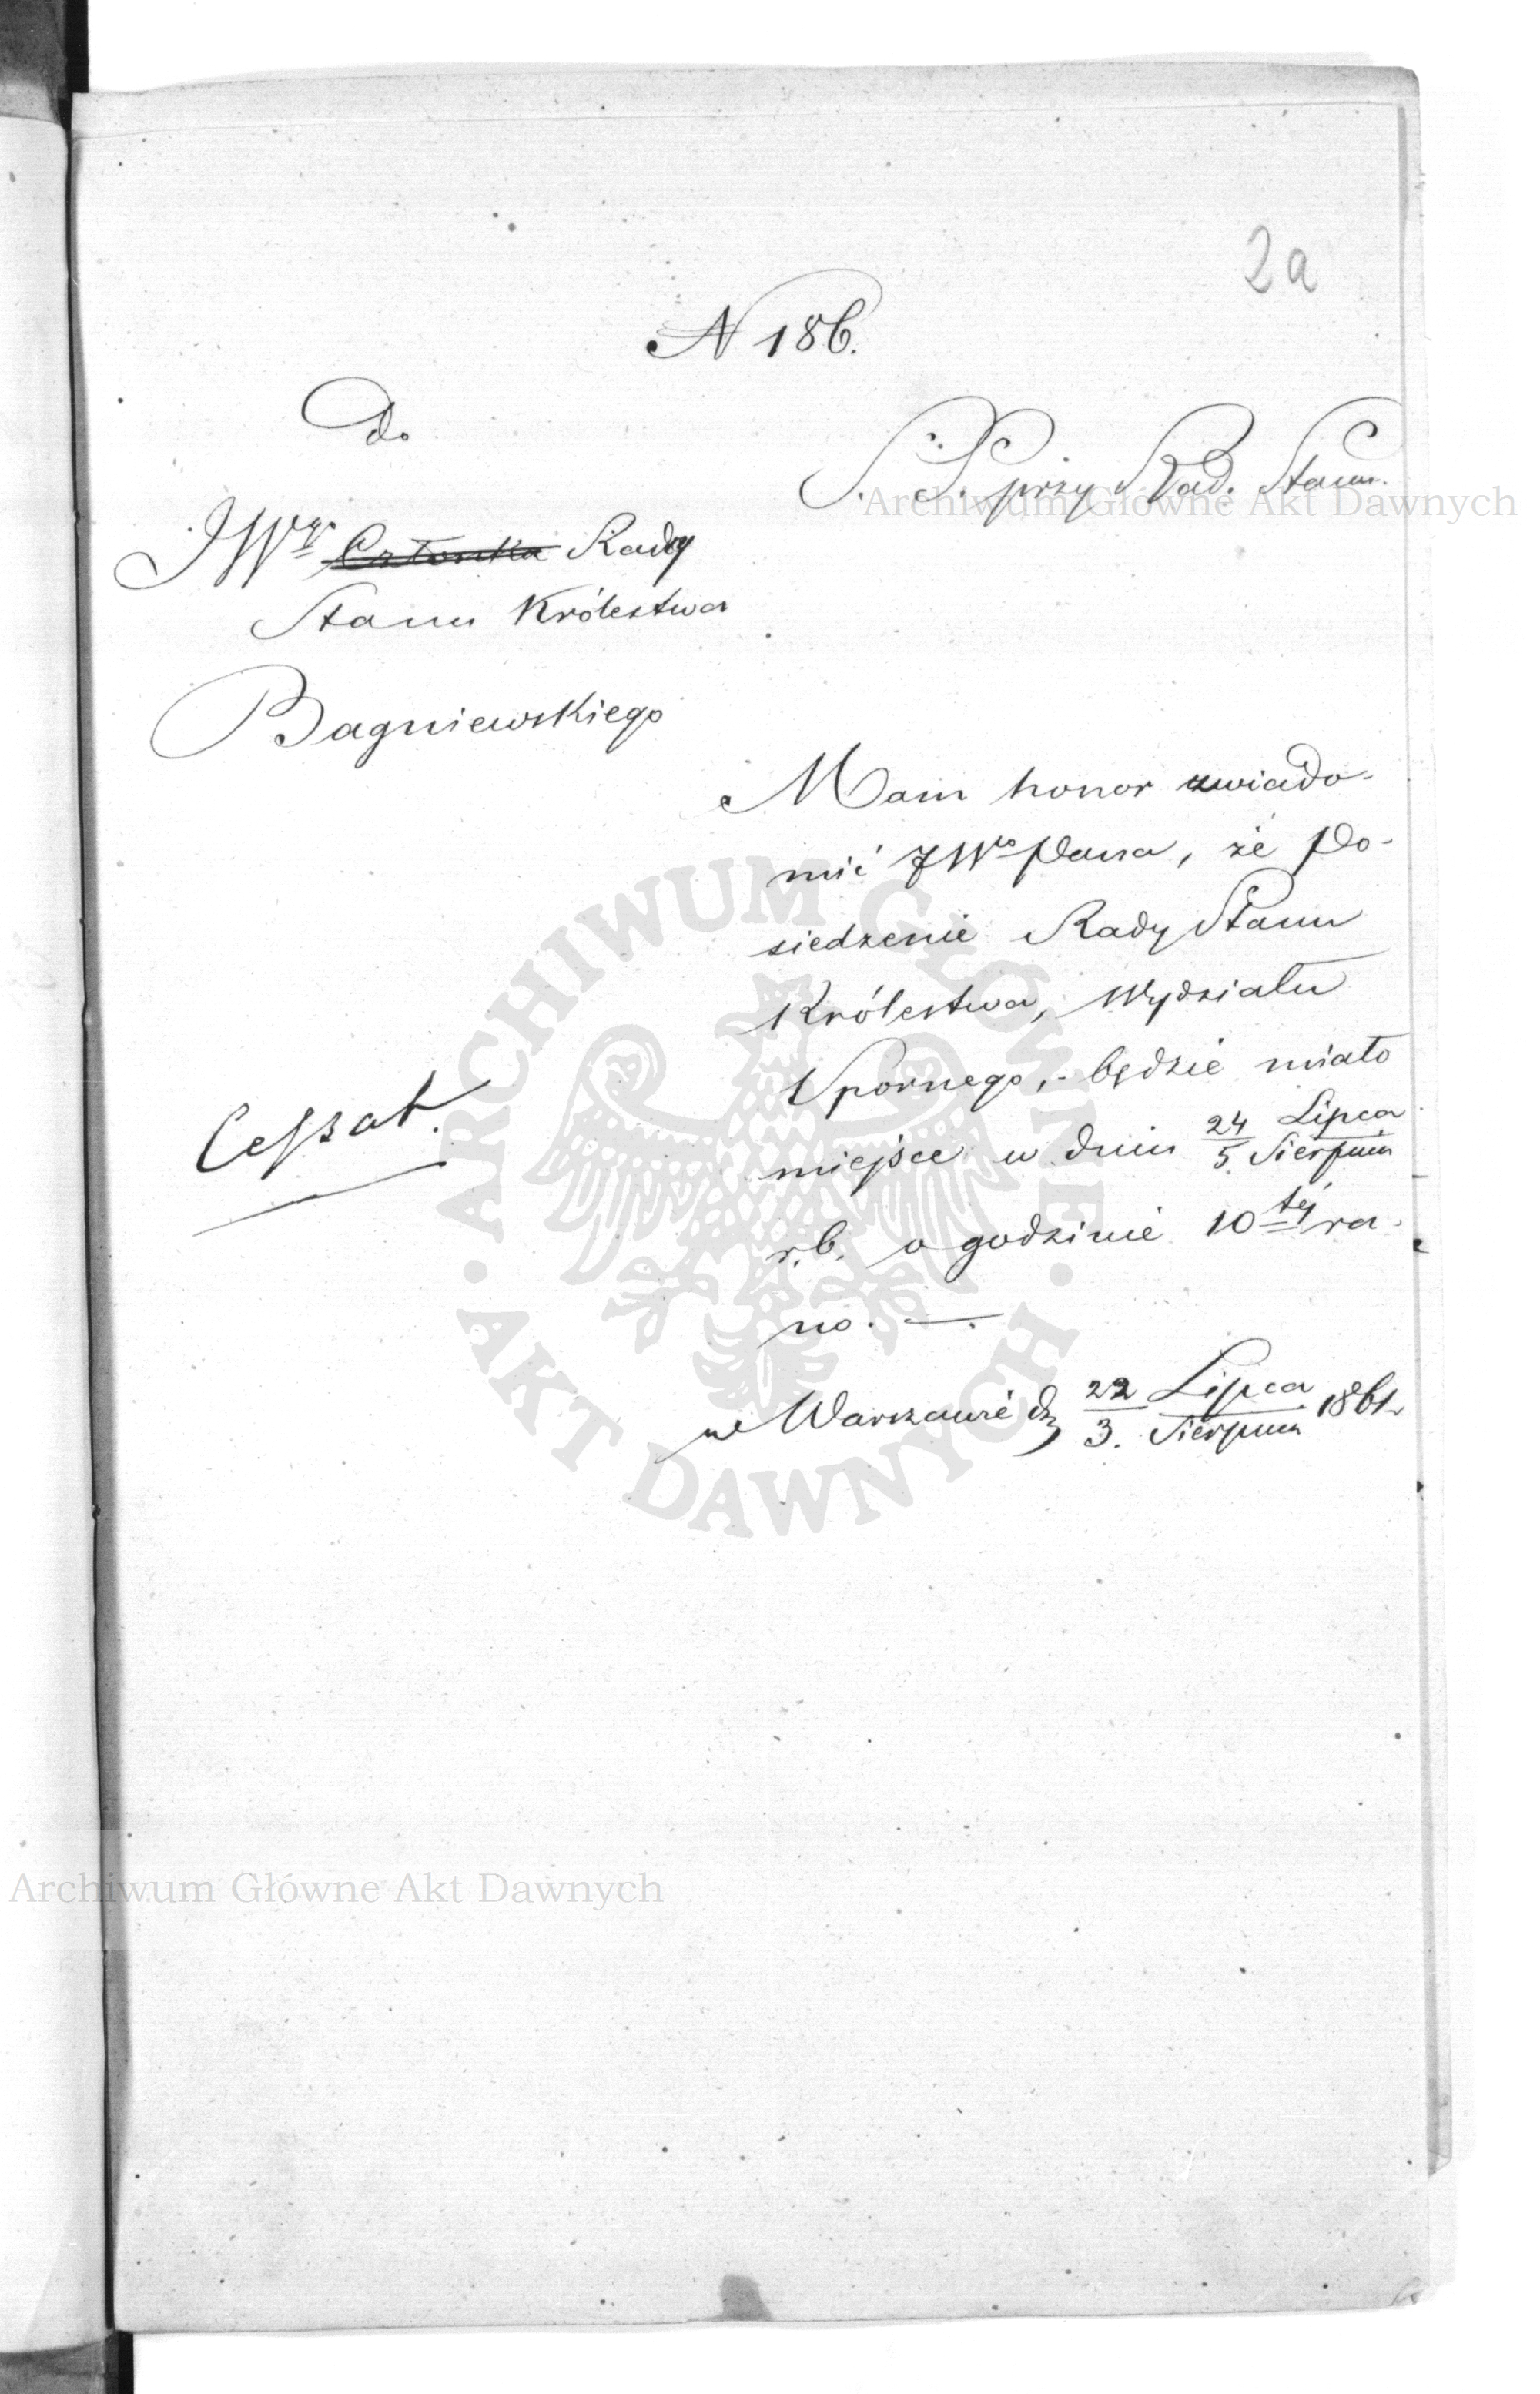 2a
N 186.
Do
S. S. przy Rad. Stanu.
JWgo Członka Rady
Stanu Królestwa
Bagniewskiego
Mam honor uwiado-
mić JWo Pana, że Po-
siedzenie Rady Stanu
Królestwa, Wydziału
Spornego, - będzie miało
Cessat.
miejsce w dniu 24/5. Lipca/Sierpnia
r.b. o godzinie 10tej ra-
no. —.
w Warszawie d. 22/3. Lipca/Sierpnia 1861 r.
Archiwum Główne Akt Dawnych
ARCHIWUM GŁÓWNE
AKT DAWNYCH
Archiwum Główne Akt Dawnych